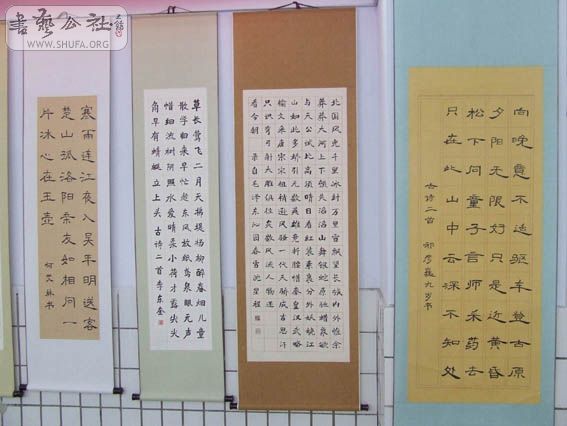 書藝公社
WWW.SHUFA.ORG
寒雨连江夜入吴平明送客
楚山孤洛阳亲友如相问一
片冰心在玉壶
草长莺飞二月天拂堤杨柳醉春烟儿童
散学归来早忙趁东风放纸鸢泉眼无声
惜细流树阴照水爱晴柔小荷才露尖尖
角早有蜻蜓立上头 古诗二首李东奎
北国风光千里冰封万里雪飘望长城内外惟余
莽莽大河上下顿失滔滔山舞银蛇原驰蜡象欲
与天公试比高须晴日看红装素裹分外妖娆江
山如此多娇引无数英雄竞折腰惜秦皇汉武略
输文采唐宗宋祖稍逊风骚一代天骄成吉思汗
只识弯弓射大雕俱往矣数风流人物还
看今朝 录自毛泽东沁园春雪 池里程
向晚意不适驱车登古原
夕阳无限好只是近黄昏
松下问童子言师采药去
只在此山中云深不知处
古诗二首 九岁书